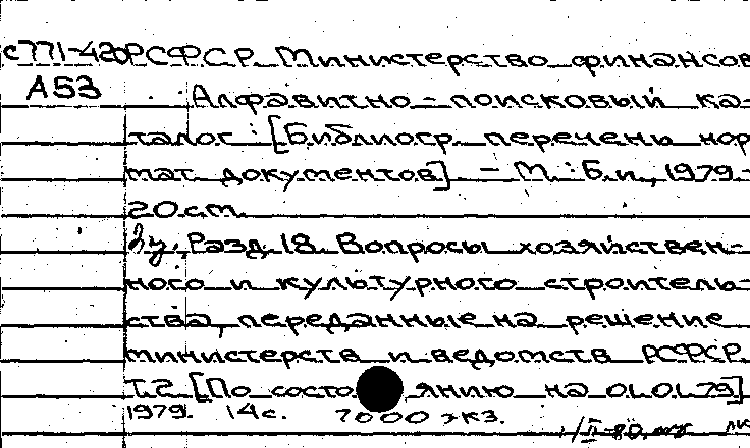 с771-420 РСФСР. Министерство финансов
А53
Алфавитно-поисковый ка-
талог: [Библиогр. перечень нор
мат. документов] - М.: Б.и., 1979 -
20 см.
Разд. 18. Вопросы хозяйствен-
ного и культурного строитель-
ства, переданные на решение
министерств и ведомств РСФСР
Т.2. [По состоянию на 01.01.79]
1979. 14с. 7000 экз.